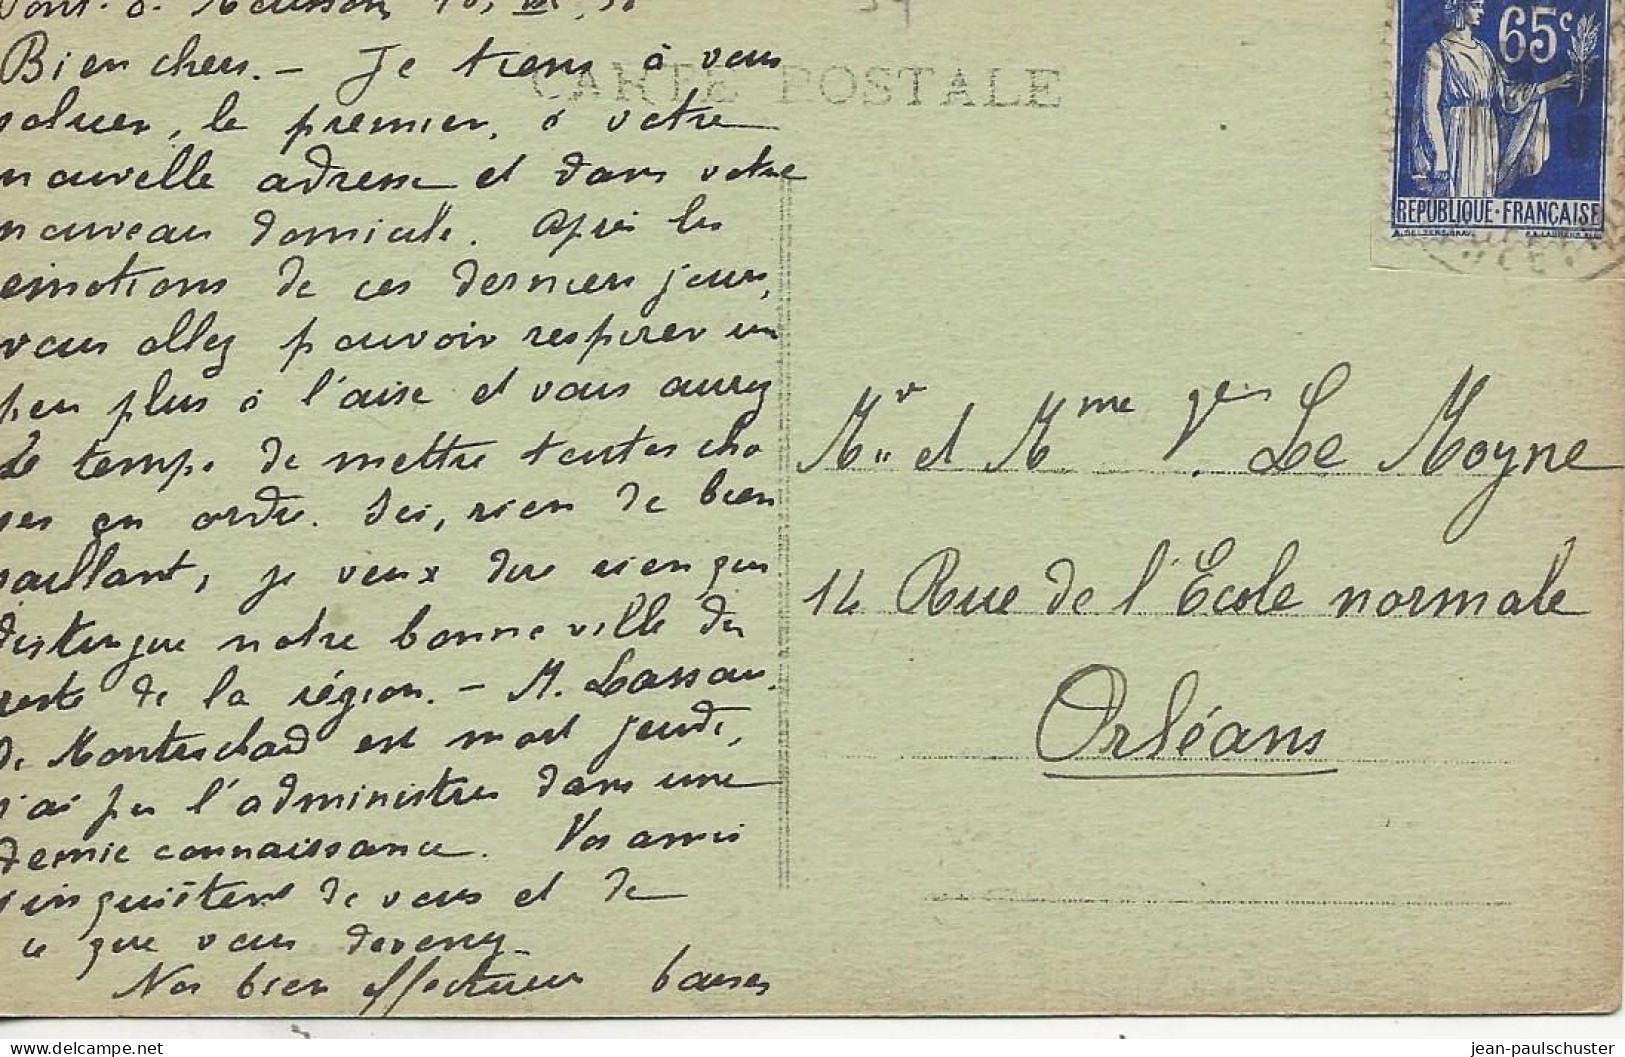 Pont-à-Mousson
Bien chers. - Je tiens à vous
saluer, le premier, à votre
nouvelle adresse et dans votre
nouveau domicile. Après les
émotions de ces derniers jours,
vous allez pouvoir respirer un
peu plus à l'aise et vous aurez
le temps de mettre toutes cho
ses en ordre. Ici, rien de bien
saillant, je veux dire rien qui
distingue notre bonne ville du
reste de la région. - M.
de est mort jeudi,
j'ai pu l'administrer dans une
demie connaissance. Vos amis
s'inquiètent de vous et de
ce que vous devenez -
Nos bien affectueux baisers
CARTE POSTALE
65c
REPUBLIQUE·FRANÇAISE
Mr et Mme Vr Le Moyne
14 Rue de l'Ecole normale
Orléans
jean-paulschuster